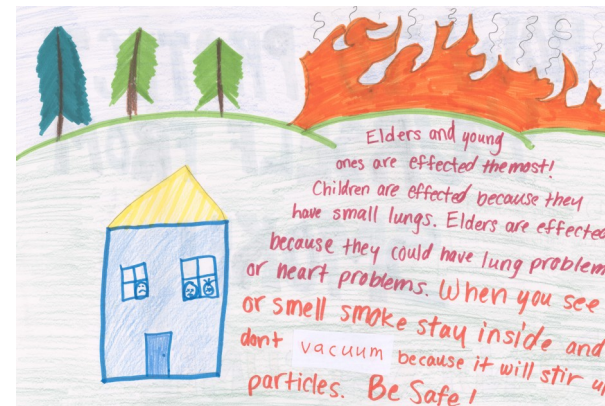 Elders and young
ones are effected the most!
Children are effected because they
have small lungs. Elders are effected
because they could have lung problem
or heart problems. When you see
or smell smoke stay inside and
dont vacuum because it will stir u
particles. Be Safe!